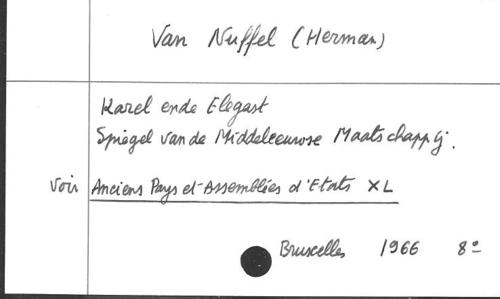 Van Nuffel (Herman)
Karel ende Elegast
Spiegel van de Middeleeuwse Maatschappij.
voir Anciens Pays et Assemblées d'Etats XL
Bruxelles 1966 8º